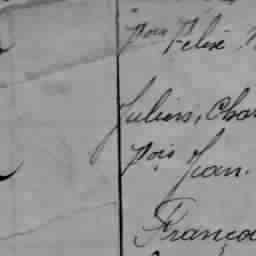 pois Félix
Julien, Char
pois Jean.
Françoi